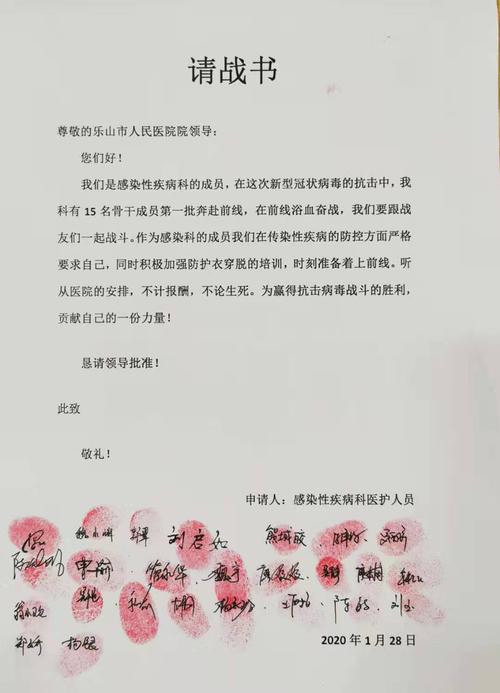 请战书
尊敬的乐山市人民医院院领导：
您们好！
我们是感染性疾病科的成员，在这次新型冠状病毒的抗击中，我
科有 15 名骨干成员第一批奔赴前线，在前线浴血奋战，我们要跟战
友们一起战斗。作为感染科的成员我们在传染性疾病的防控方面严格
要求自己，同时积极加强防护衣穿脱的培训，时刻准备着上前线。听
从医院的安排，不计报酬，不论生死。为赢得抗击病毒战斗的胜利，
贡献自己的一份力量！
恳请领导批准！
此致
敬礼！
申请人：感染性疾病科医护人员
刘启如
郑娇 杨银
2020 年 1 月 28 日